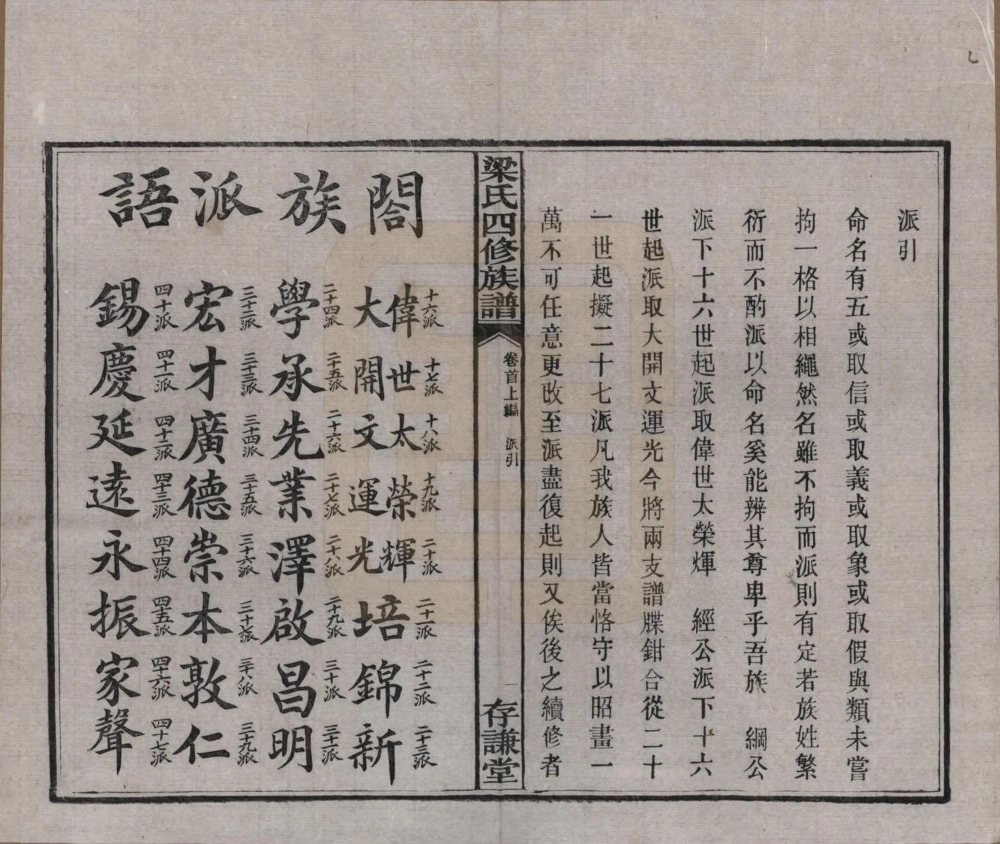 派引
命名有五或取信或取義或取象或取假與類未嘗
拘一格以相繩然名雖不拘而派則有定若族姓繁
衍而不酌派以命名奚能辨其尊卑乎吾族 綱公
派下十六世起派取偉世太榮輝 經公派下十六
世起派取大開文運光今將兩支譜牒鉗合從二十
一世起擬二十七派凡我族人皆當恪守以昭畫一
萬不可任意更改至派盡復起則又俟後之續修者
梁氏四修族譜
卷首上編 派引
一
存謙堂
閤族派語
十六派 十七派 十八派 十九派 二十派 二十一派 二十二派 二十三派
偉世太榮輝
大開文運光 培錦新
二十四派 二十五派 二十六派 二十七派 二十八派 二十九派 三十派 三十一派
學承先業澤啟昌明
三十二派 三十三派 三十四派 三十五派 三十六派 三十七派 三十八派 三十九派
宏才廣德崇本敦仁
四十派 四十一派 四十二派 四十三派 四十四派 四十五派 四十六派 四十七派
錫慶延遠永振家聲